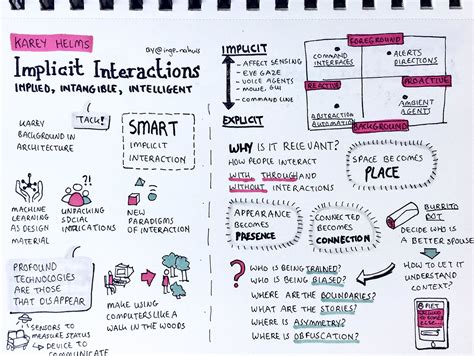 KAREY HELMS
BY @inge_nahuis
Implicit Interactions
IMPLIED, INTANGIBLE, INTELLIGENT
TACK!
KARRY
BACKGROUND IN
ARCHITECTURE
SMART
IMPLICIT
INTERACTION
?!
MACHINE
LEARNING
AS DESIGN
MATERIAL
UNPACKING
SOCIAL
IMPLICATIONS
NEW
PARADIGMS OF
INTERACTION
PROFOUND
TECHNOLOGIES
ARE THOSE
THAT DISAPPEAR
MAKE USING
COMPUTERS LIKE A
WALK IN THE WOODS
SENSORS TO
MEASURE STATUS
DEVICE TO
COMMUNICATE
IMPLICIT
- AFFECT SENSING
- EYE GAZE
- VOICE AGENTS
- MOUSE, GUI
- COMMAND LINE
EXPLICIT
FOREGROUND
COMMAND
INTERFACES
ALERTS
DIRECTIONS
REACTIVE
PROACTIVE
ABSTRACTION
AUTOMATION
AMBIENT
AGENTS
BACKGROUND
WHY IS IT RELEVANT?
HOW PEOPLE INTERACT
WITH, THROUGH AND
WITHOUT INTERACTIONS
SPACE BECOMES
PLACE
APPEARANCE
BECOMES
PRESENCE
CONNECTED
BECOMES
CONNECTION
BURRITO
BOT
DECIDE WHO IS
A BETTER SPOUSE
? WHO IS BEING TRAINED?
WHO IS BEING BIASED?
WHERE ARE THE BOUNDARIES?
WHAT ARE THE STORIES?
WHERE IS ASYMMETRY?
WHERE IS OBFUSCATION?
HOW TO LET IT
UNDERSTAND
CONTEXT?